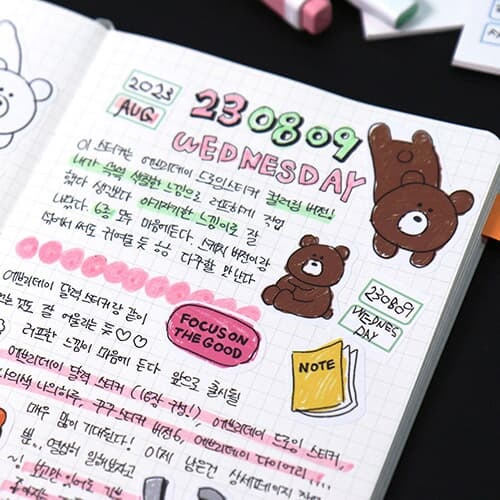 2023
AUG
230809
WEDNESDAY
이 스티커는 에브리데이 드로잉스티커 컬러링 버전!
내가 쓱쓱 색칠한 느낌으로 러프하게 작업
했다 생겼다 아기자기한 느낌이로 잘
나왔다. 6종 모두 마음에든다. 스케치 버전이랑
섞어서 써도 귀여울 듯 다꾸할 맛 난다
230809
WEDNES
DAY
에브리데이 달력 스티커랑 같이
쓰는 것도 잘 어울리는 듯♡♡
러프한 느낌이 마음에 든다 앞으로 출시될
FOCUS ON
THE GOOD
NOTE
에브리데이 달력 스티커 (16장 구성!), 에브리데이 드로잉 스티커,
나의색 나의하루, 꾸꾸 스티커 버전6, 에브리데이 다이어리...
매우 많이 기대된다! 이제 남은건 상세페이지 작업
뿐.. 열심히 일해보자고